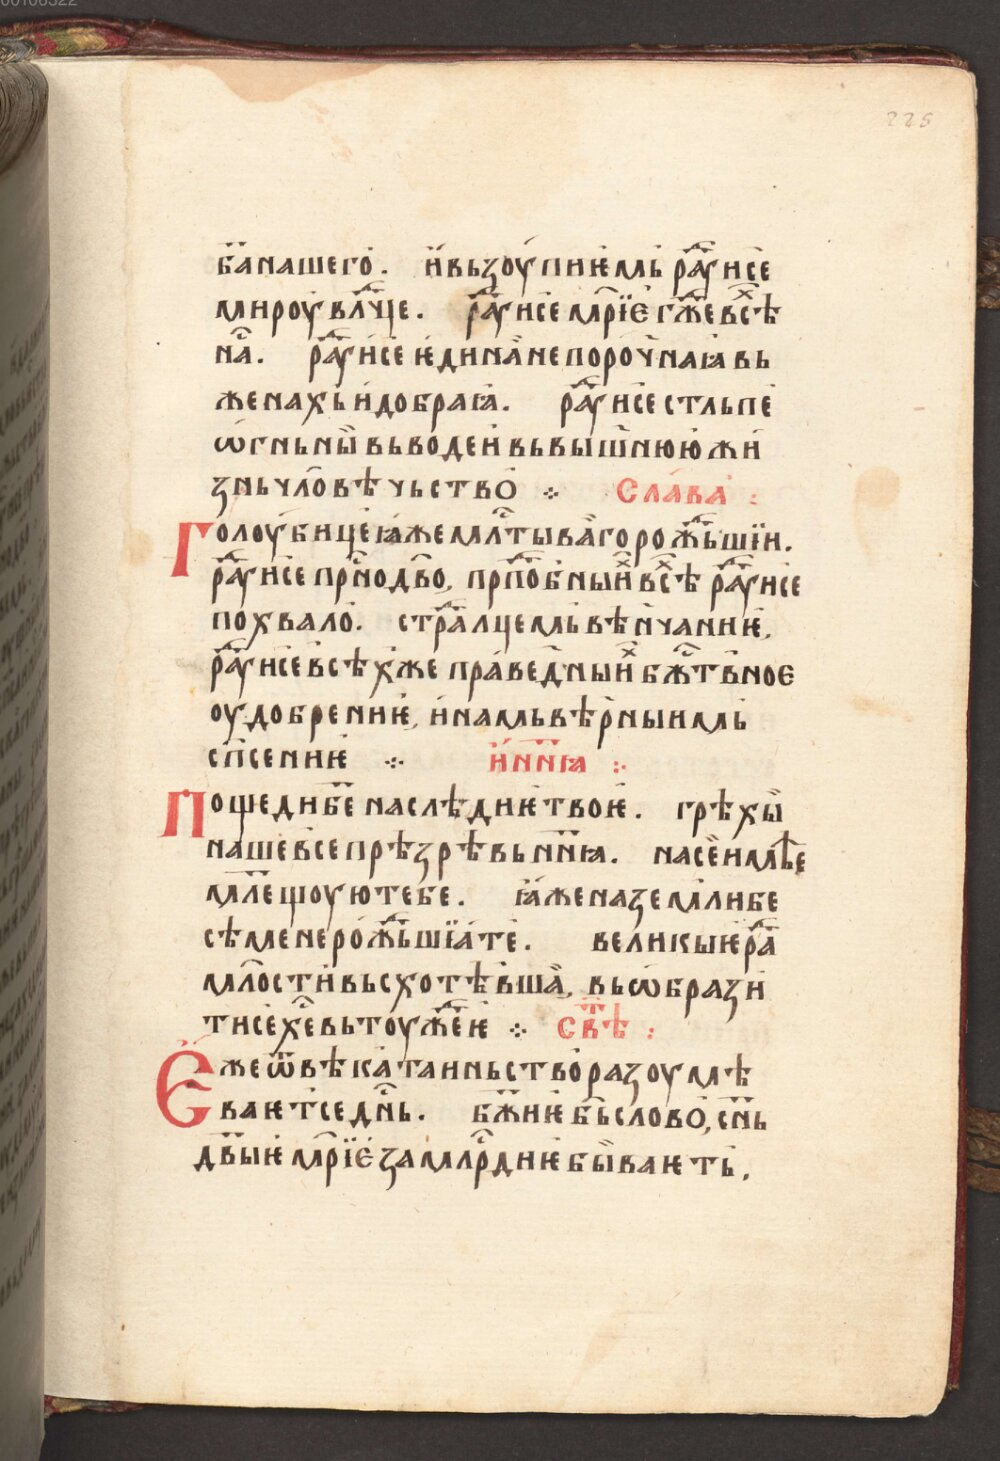 225
б҃а нашего̀. и҆ вьзоупи̑ѥмь раⷣуи се
мироу влⷣчце. раⷣуи се мр҃їѐ гж҃е всⷯѣ
на̀. раⷣуи се ѥ҆дина̀ непоро́чнаꙗ вь
женахь и҆ добраꙗ̀. раⷣуи се стльпе
ѡ҆гньны̏ вьводѐи вь вышнюю̀ жи
знь чл҃овѣчьство̀ ⁘ Слава̀ :
Голоубице ꙗ҆же млⷭ҇тыва̀го рожⷣьшїи.
раⷣуи се прⷭ҇нодв҃о, прпⷣобныиⷯ всⷯѣ раⷣуи се
похвало̀. страⷣлцемь вѣн́чаниѥ,
раⷣуи се всѣⷯ же пра́ведныиⷯ бжⷭ҇твное
оудобрениѥ, и҆ намь вѣ́рныимь
сп҃сениѥ ⁘ и҆ нн҃ꙗ ⁘
Пощеди бж҃е наслѣдиѥ твоѥ. грѣхы̏
наше все прѣзрѣвь нн҃ꙗ. на сѐ имѣе
мл҃ещоую тебе. ꙗ҆же на земли бе
сѣмене рожⷣьшїа те. великыѥ раⷣ
млⷭ҇ости вьсхотѣвша̀, вьѡбрази́
ти се хⷭ҇е вь тоужⷣеѥ ⁘ свⷮѣ :
Еже ѿ вѣка таиньство разоумѣ
ваѥт се днⷭ҇ь. бж҃иѥ бь слово̀, сн҃ь
дв҃ыѥ мр҃їѐ за млрⷭ҇диѥ бы̏ваѥть.